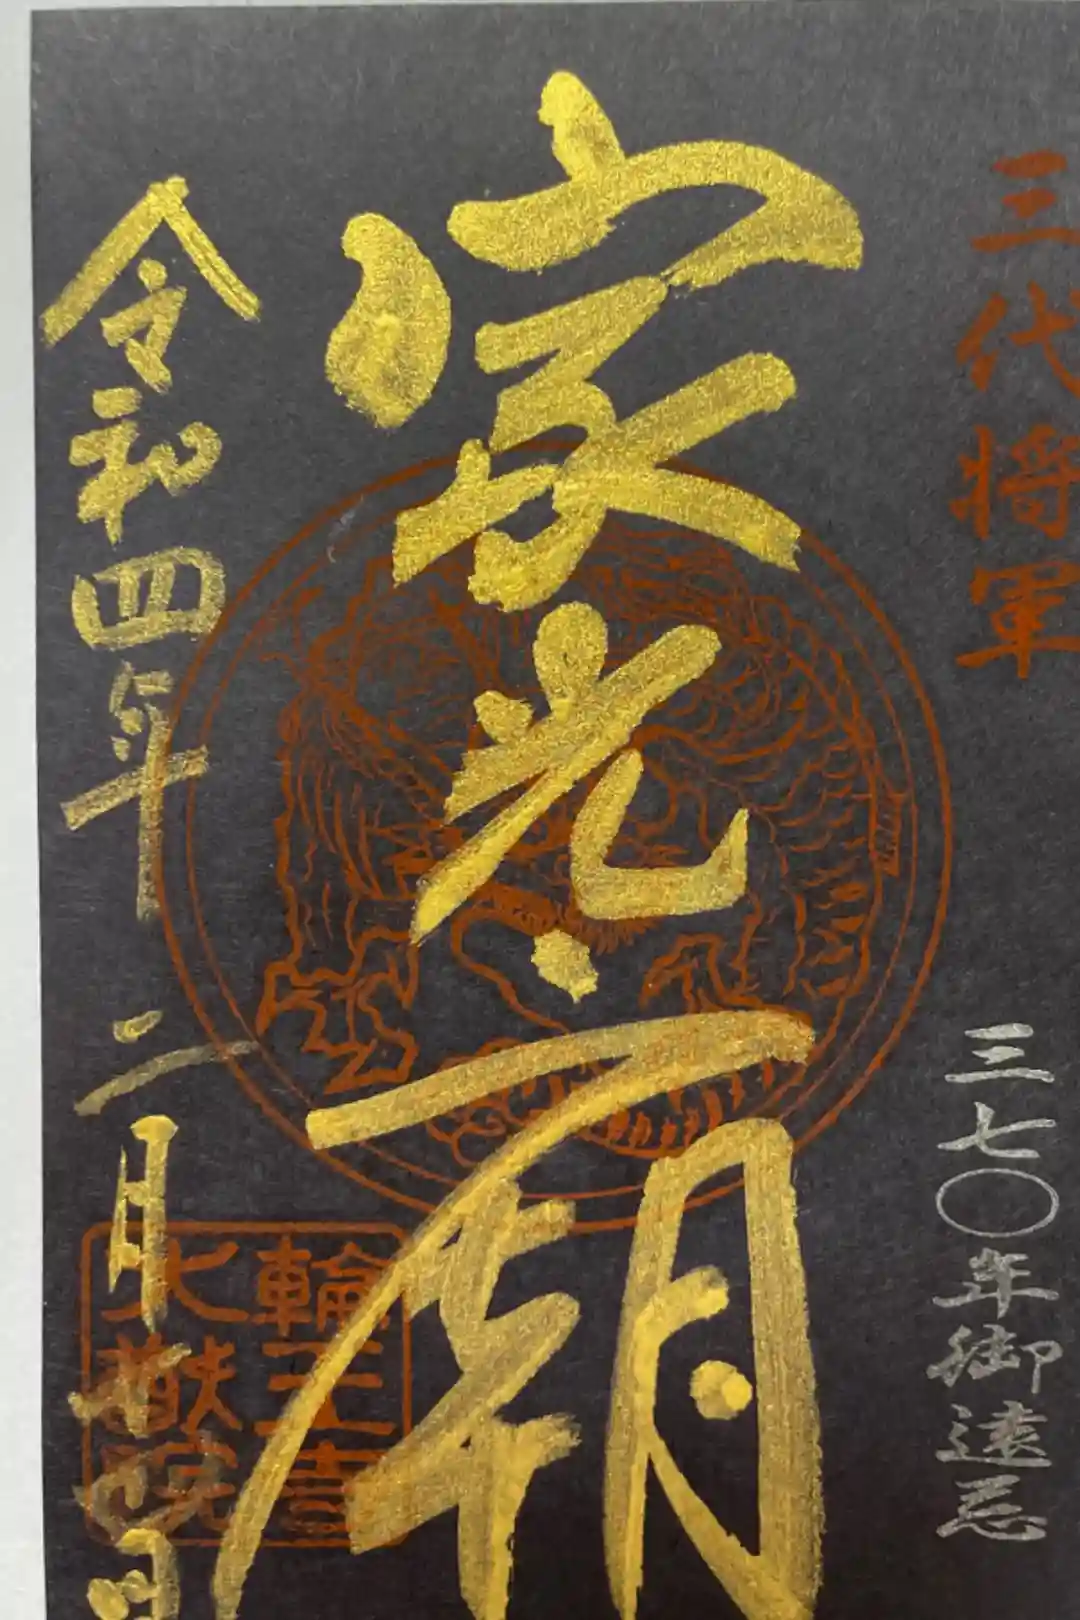 三代将軍
三七〇年御遠忌
家光廟
令和四年二月十日
輪王寺
大猷院